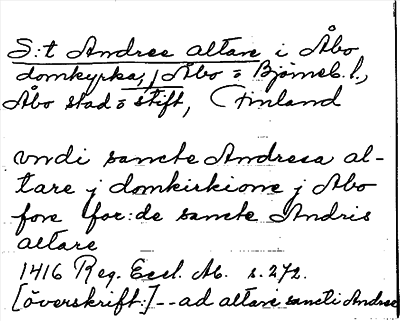 S:t Andree altare i Åbo
domkyrka, Åbo o Björneb. l.,
Åbo stad o stift, Finland
vndi sancte Andresa al-
tare j domkirkione j Abo
fore for:de sancte Andris
altare
1416 Reg. Eccl. Ab. s. 272.
[överskrift:] -- ad altare sancti Andree